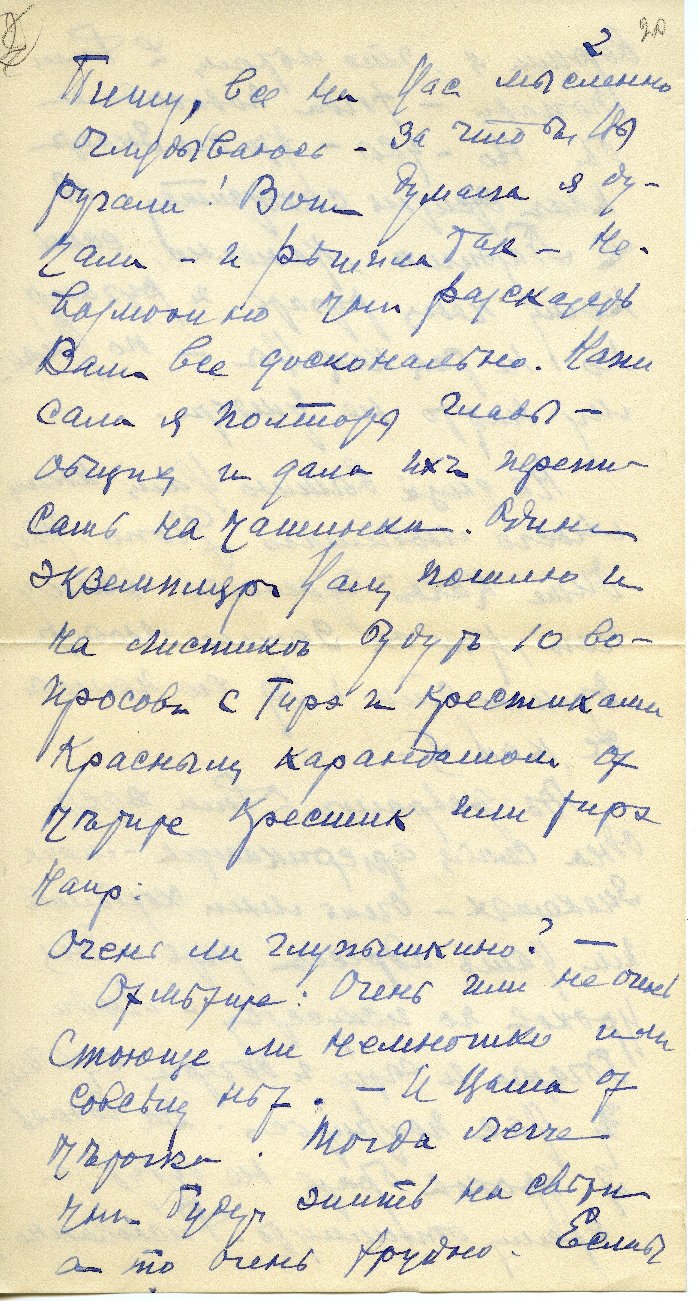 2 20
Пишу, все на Вас мысленно
оглядываюсь – за что бы Вы
ругали! Вот думала я ду-
мала – и рѣшила так – не-
возможно мнѣ разсказать
Вам все досконально. Напи
сала я полторы главы –
общих и дала их перепи-
сать на машинкѣ. Один
экземпляръ Вам пошлю и
на листикѣ будутъ 10 во-
просовъ с тирэ и крестиками
Красным карандашом от
мѣтьте крестик или тирэ
напр:
Очень ли глупышкино? –
Отмѣтьте: Очень или не очень
Стоюще ли немножко или
совсѣм нѣт. – И Ваша от
мѣтка. Тогда легче
мнѣ будет жить на свѣтѣ
а то очень трудно. Если